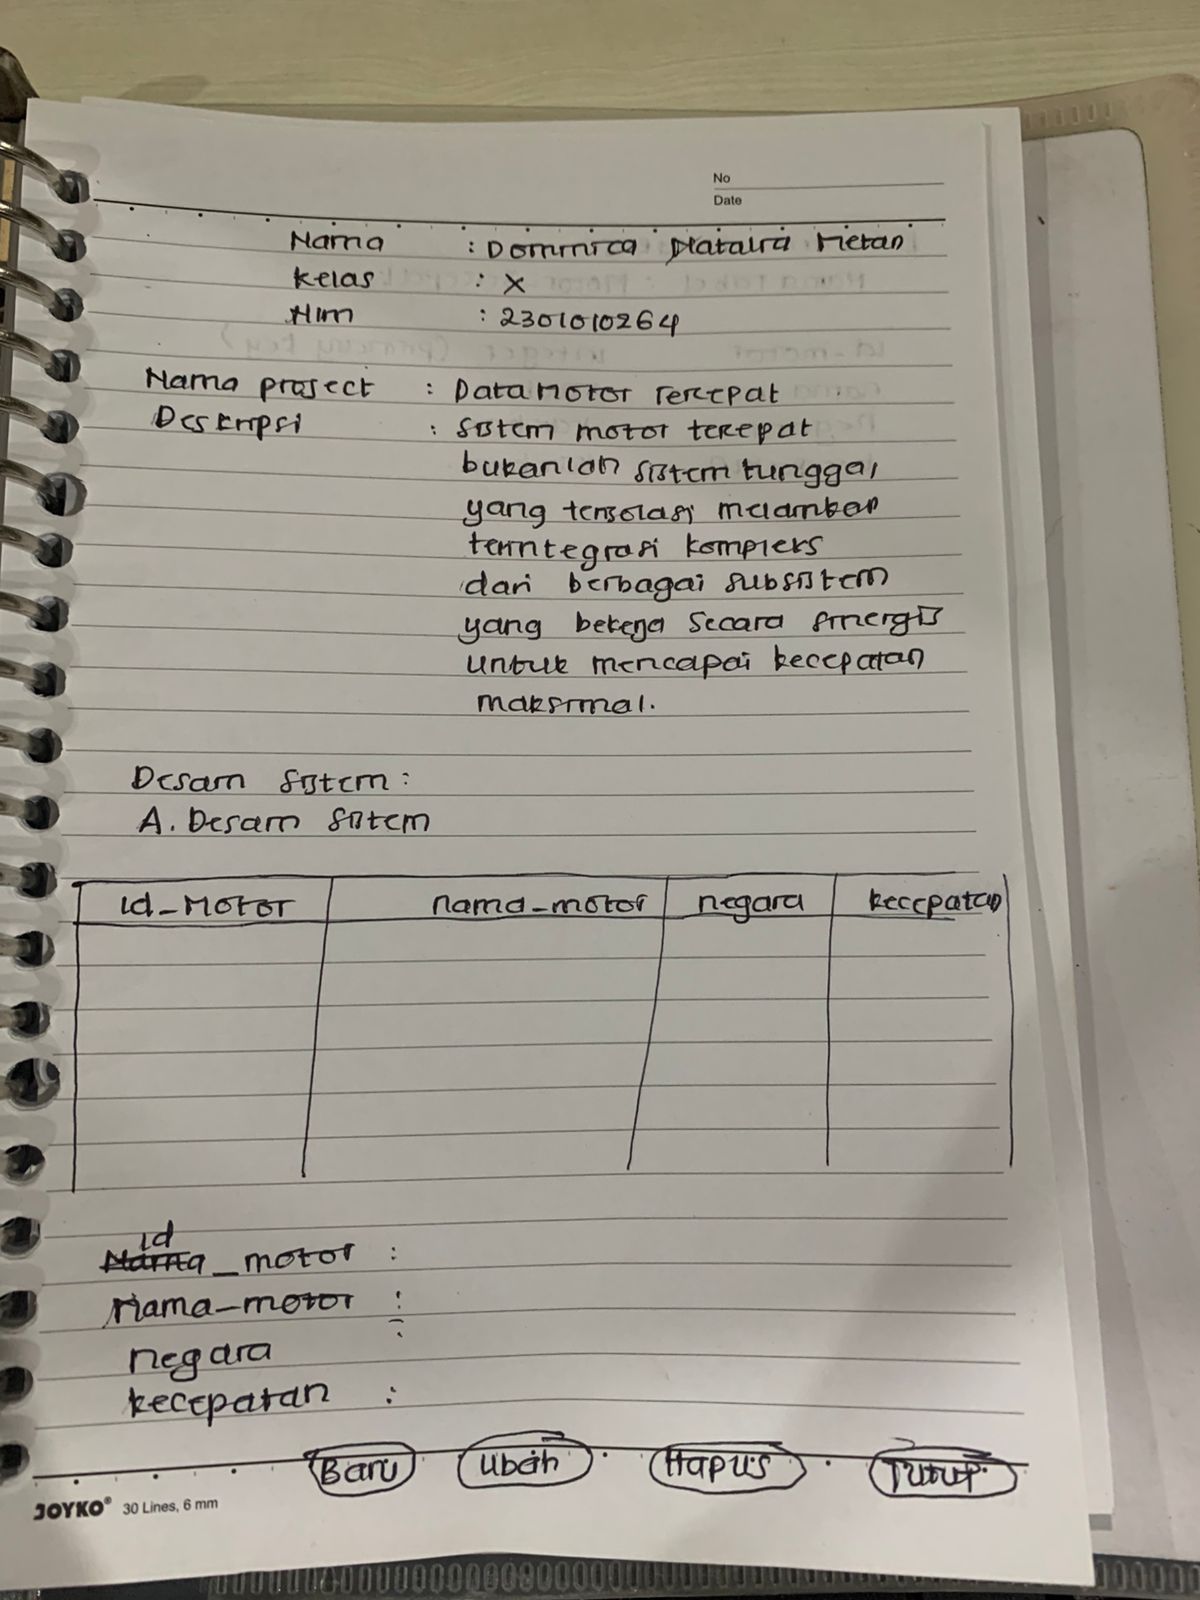 No
Date
Nama : Dominica Natalia Metan
Kelas : X
Nim : 2301010264
Nama project : Data Motor Tercepat
Deskripsi : sistem motor terepat
bukanlah sistem tunggal
yang terisolasi melainkan
terintegrasi kompleks
dari berbagai subsistem
yang bekerja secara sinergis
untuk mencapai kecepatan
maksimal.
Desain sistem :
A. Desain sistem
id_Motor nama_motor negara kecepatan
id
Nama_motor :
Nama_motor :
negara :
kecepatan :
Baru Ubah Hapus Tutup
JOYKO® 30 Lines, 6 mm